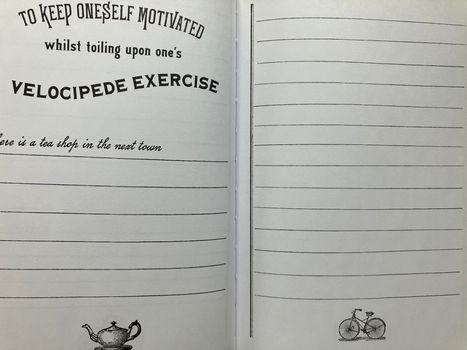 TO KEEP ONESELF MOTIVATED
whilst toiling upon one's
VELOCIPEDE EXERCISE
ere is a tea shop in the next town